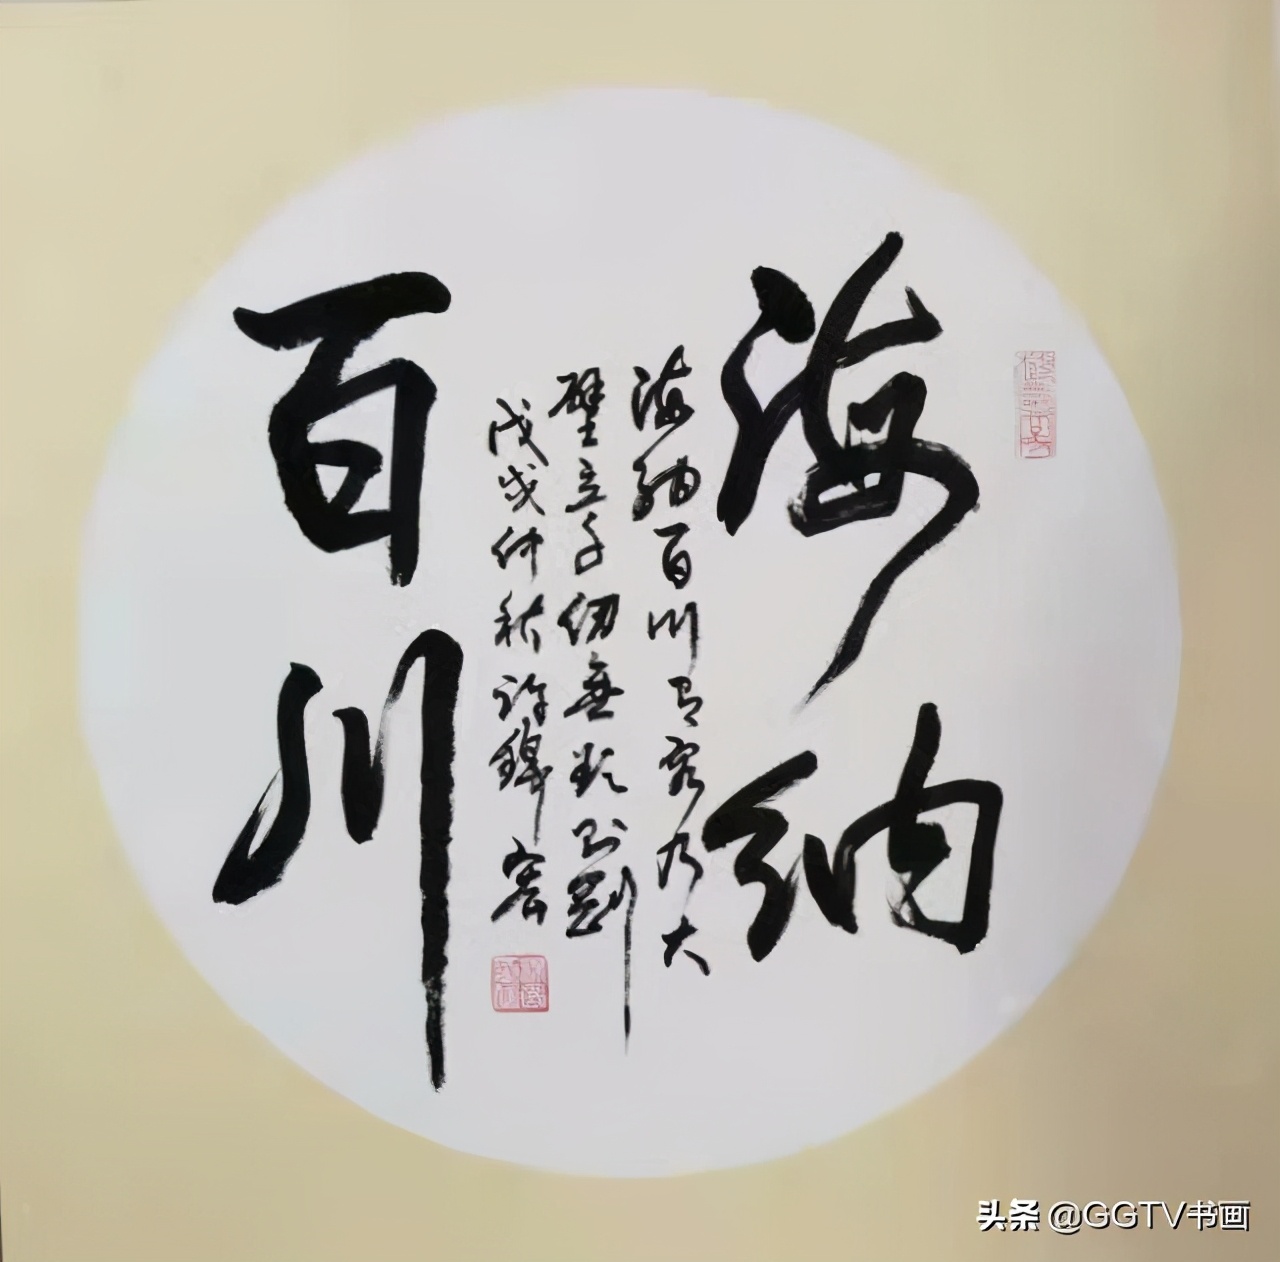 海纳
百川
海纳百川有容乃大
壁立千仞無欲則剛
戊戌仲秋许锦宏
头条 @GGTV书画